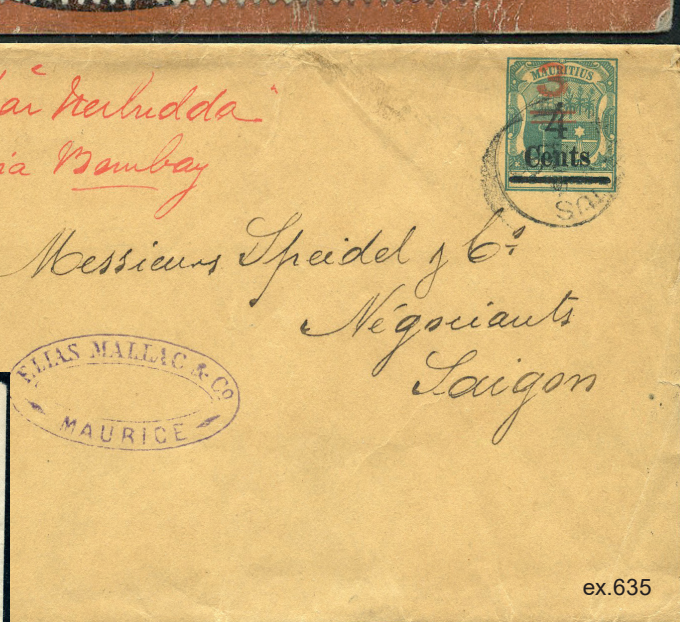 "Nerbudda"
Bombay
MAURITIUS
3
4
Cents
Messieurs Speidel & Co.
Négociants
Saigon
ELIAS MALLAC & Co
MAURICE
ex.635